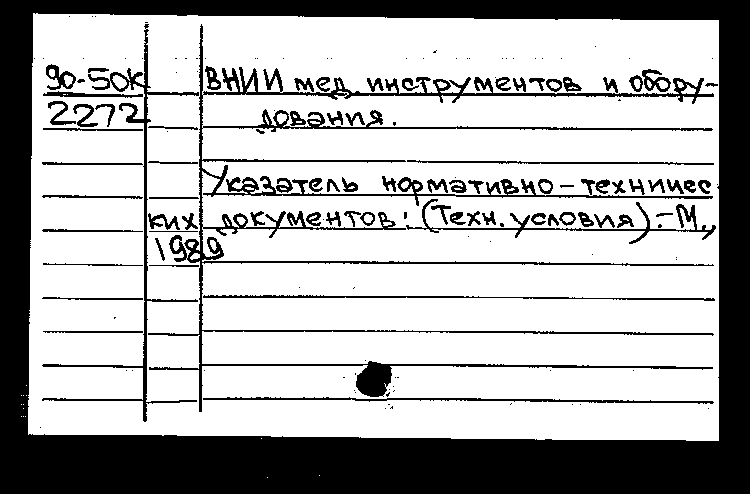 90-50К ВНИИ мед. инструментов и обору-
2272 дования.
Указатель нормативно-техничес
ких документов: (Техн. условия).-М.,
1989